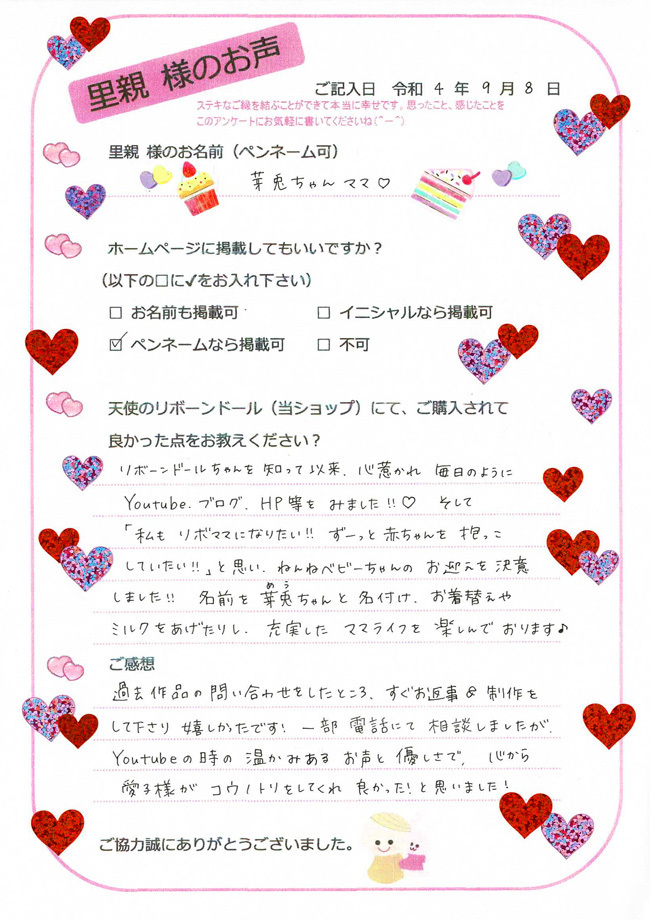 里親 様のお声
ご記入日 令和 4 年 9 月 8 日
ステキなご縁を結ぶことができて本当に幸せです。思ったこと、感じたことを
このアンケートにお気軽に書いてくださいね(^ー^)
里親 様のお名前（ペンネーム可）
芽兎ちゃんママ♡
ホームページに掲載してもいいですか？
（以下の□に✓をお入れ下さい）
□ お名前も掲載可 □ イニシャルなら掲載可
☑ ペンネームなら掲載可 □ 不可
天使のリボーンドール（当ショップ）にて、ご購入されて
良かった点をお教えください？
リボーンドールちゃんを知って以来、心惹かれ 毎日のように
Youtube、ブログ、HP等を みました!!♡ そして
「私も リボママになりたい!! ずーっと赤ちゃんを 抱っこ
していたい!!」と思い、ねんねベビーちゃんの お迎えを決意
しました!! 名前を 芽兎(めう)ちゃんと 名付け、お着替えや
ミルクをあげたりし、充実した ママライフを 楽しんで おります♪
ご感想
過去作品の問い合わせをしたところ、すぐお返事&制作を
して下さり 嬉しかったです! 一部 電話にて 相談しましたが、
Youtubeの時の 温かみある お声と 優しさで、心から
愛子様が コウノトリをしてくれ 良かった!と思いました!
ご協力誠にありがとうございました。